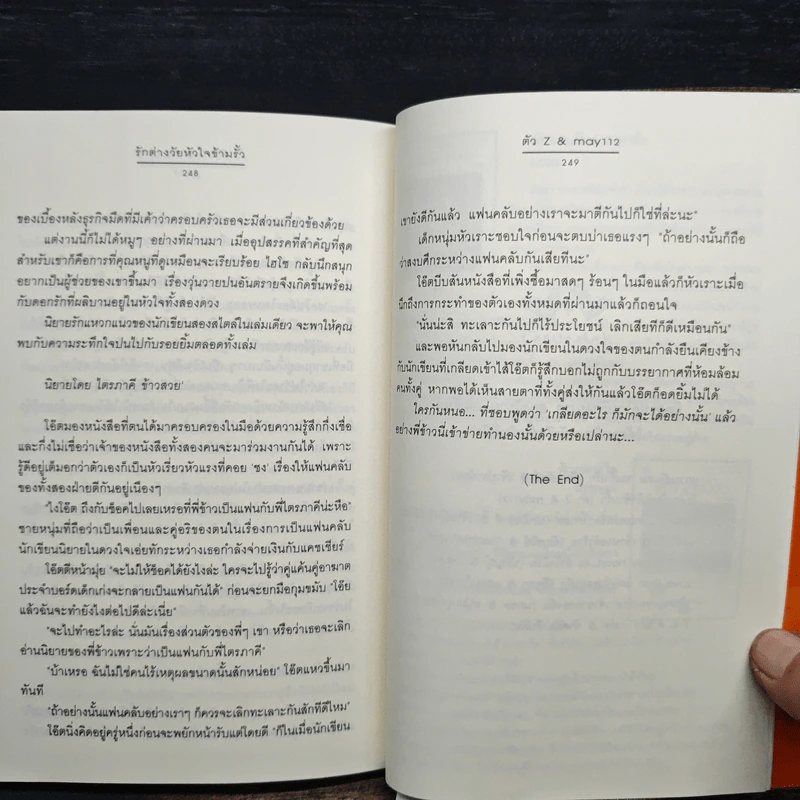 รักต่างวัยหัวใจข้ามรั้ว
248
ของเบื้องหลังธุรกิจมืดที่มีเค้าว่าครอบครัวเธอจะมีส่วนเกี่ยวข้องด้วย
แต่งานนี้ก็ไม่ได้หมูๆ อย่างที่ผ่านมา เมื่ออุปสรรคที่สำคัญที่สุด
สำหรับเขาก็คือการที่คุณหนูที่ดูเหมือนจะเรียบร้อย ไฮโซ กลับนึกสนุก
อยากเป็นผู้ช่วยของเขาขึ้นมา เรื่องวุ่นวายปนอันตรายจึงเกิดขึ้นพร้อม
กับดอกรักที่ผลิบานอยู่ในหัวใจทั้งสองดวง
นิยายรักแหวกแนวของนักเขียนสองสไตล์ในเล่มเดียว จะพาให้คุณ
พบกับความระทึกใจปนไปกับรอยยิ้มตลอดทั้งเล่ม
นิยายโดย ไตรภาคี ข้าวสวย'
โอ๊ตมองหนังสือที่ตนได้มาครอบครองในมือด้วยความรู้สึกกึ่งเชื่อ
และกึ่งไม่เชื่อว่าเจ้าของหนังสือทั้งสองคนจะมาร่วมงานกันได้ เพราะ
รู้ดีอยู่เต็มอกว่าตัวเองก็เป็นหัวเรี่ยวหัวแรงที่คอย 'ชง' เรื่องให้แฟนคลับ
ของทั้งสองฝ่ายตีกันอยู่เนืองๆ
"ไงโอ๊ต ถึงกับช็อคไปเลยเหรอที่พี่ข้าวเป็นแฟนกับพี่ไตรภาคีน่ะหือ"
ชายหนุ่มที่ถือว่าเป็นเพื่อนและคู่อริของตนในเรื่องการเป็นแฟนคลับ
นักเขียนนิยายในดวงใจเอ่ยทักระหว่างเธอกำลังจ่ายเงินกับแคชเชียร์
โอ๊ตตีหน้ามุ่ย "จะไม่ให้ช็อคได้ยังไงล่ะ ใครจะไปรู้ว่าคู่แค้นคู่อาฆาต
ประจำบอร์ดเด็กเก่งจะกลายเป็นแฟนกันได้" ก่อนจะยกมือกุมขมับ "โอ๊ย
แล้วฉันจะทำยังไงต่อไปดีล่ะเนี่ย"
"จะไปทำอะไรล่ะ นั่นมันเรื่องส่วนตัวของพี่ๆ เขา หรือว่าเธอจะเลิก
อ่านนิยายของพี่ข้าวเพราะว่าเป็นแฟนกับพี่ไตรภาคี"
"บ้าเหรอ ฉันไม่ใช่คนไร้เหตุผลขนาดนั้นสักหน่อย" โอ๊ตแหวขึ้นมา
ทันที
"ถ้าอย่างนั้นแฟนคลับอย่างเราๆ ก็ควรจะเลิกทะเลาะกันสักทีดีไหม"
โอ๊ตนิ่งคิดอยู่ครู่หนึ่งก่อนจะพยักหน้ารับแต่โดยดี "ก็ในเมื่อนักเขียน
ตัว Z & may112
249
เขายังดีกันแล้ว แฟนคลับอย่างเราจะมาตีกันไปก็ใช่ที่ล่ะนะ"
เด็กหนุ่มหัวเราะชอบใจก่อนจะตบบ่าเธอแรงๆ "ถ้าอย่างนั้นก็ถือ
ว่าสงบศึกระหว่างแฟนคลับกันเสียทีนะ"
โอ๊ตบีบสันหนังสือที่เพิ่งซื้อมาสดๆ ร้อนๆ ในมือแล้วก็หัวเราะเมื่อ
นึกถึงการกระทำของตัวเองทั้งหมดที่ผ่านมาแล้วก็ถอนใจ
"นั่นน่ะสิ ทะเลาะกันไปก็ไร้ประโยชน์ เลิกเสียทีก็ดีเหมือนกัน"
และพอหันกลับไปมองนักเขียนในดวงใจของตนกำลังยืนเคียงข้าง
กับนักเขียนที่เกลียดเข้าไส้โอ๊ตก็รู้สึกบอกไม่ถูกกับบรรยากาศที่ห้อมล้อม
คนทั้งคู่ หากพอได้เห็นสายตาที่ทั้งคู่ส่งให้กันแล้วโอ๊ตก็อดยิ้มไม่ได้
ใครกันหนอ... ที่ชอบพูดว่า 'เกลียดอะไร ก็มักจะได้อย่างนั้น' แล้ว
อย่างพี่ข้าวนี่เข้าข่ายทำนองนั้นด้วยหรือเปล่านะ...
(The End)